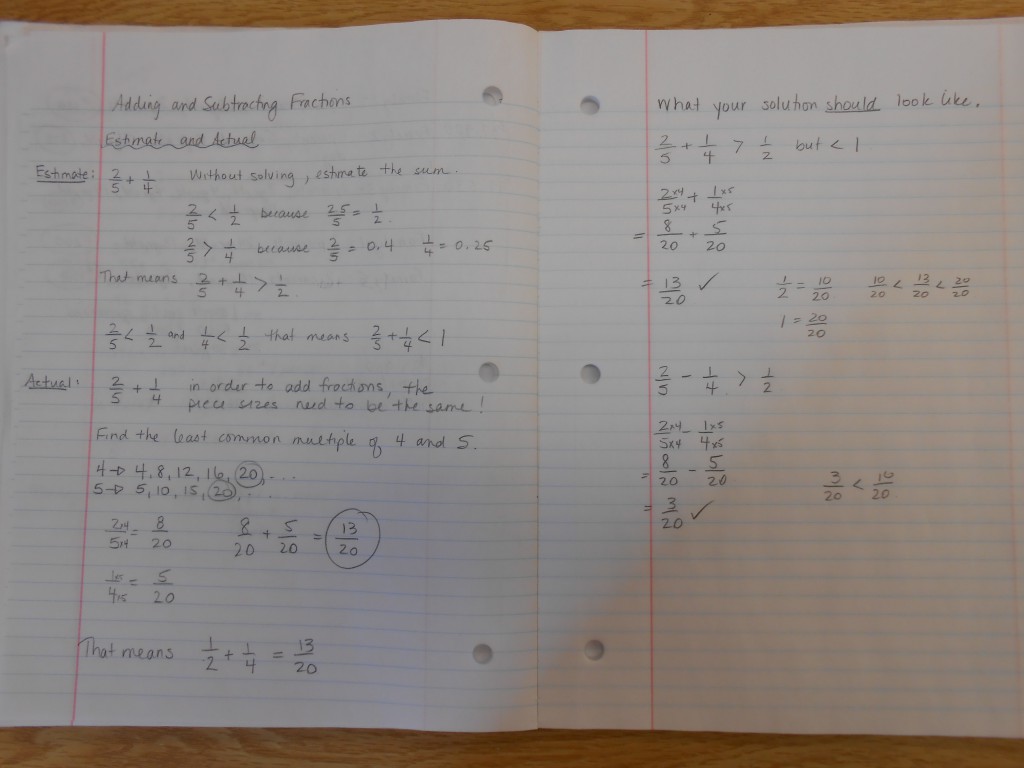 Adding and Subtracting Fractions
Estimate and Actual
Estimate: 2/5 + 1/4 Without solving, estimate the sum.
2/5 < 1/2 because 2.5/5 = 1/2
2/5 > 1/4 because 2/5 = 0.4 1/4 = 0.25
That means 2/5 + 1/4 > 1/2
2/5 < 1/2 and 1/4 < 1/2 that means 2/5 + 1/4 < 1
Actual: 2/5 + 1/4 in order to add fractions, the
piece sizes need to be the same!
Find the least common multiple of 4 and 5.
4 → 4, 8, 12, 16, 20, ...
5 → 5, 10, 15, 20, ...
2x4/5x4 = 8/20 8/20 + 5/20 = 13/20
1x5/4x5 = 5/20
That means 1/2 + 1/4 = 13/20
What your solution should look like.
2/5 + 1/4 > 1/2 but < 1
2x4/5x4 + 1x5/4x5
= 8/20 + 5/20
= 13/20 ✓ 1/2 = 10/20 10/20 < 13/20 < 20/20
1 = 20/20
2/5 - 1/4 > 1/2
2x4/5x4 - 1x5/4x5
= 8/20 - 5/20
= 3/20 ✓ 3/20 < 10/20